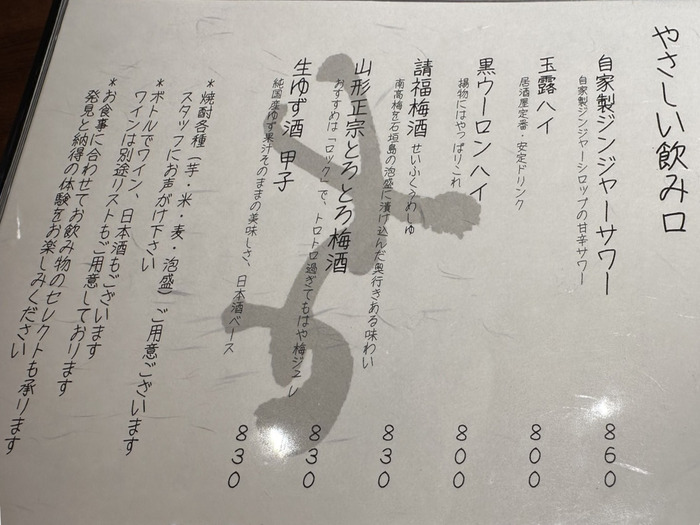 やさしい飲み口
自家製ジンジャーサワー
自家製ジンジャーシロップの甘辛サワー
860
玉露ハイ
居酒屋定番・安定ドリンク
800
黒ウーロンハイ
揚物にはやっぱりこれ
800
請福梅酒 せいふくうめしゅ
南高梅を石垣島の泡盛に漬け込んだ奥行きある味わい
830
山形正宗とろとろ梅酒
おすすめは「ロック」で、トロトロ過ぎてもはや梅ジュレ
830
生ゆず酒 甲子
純国産ゆず果汁そのままの美味しさ、日本酒ベース
830
*焼酎各種（芋・米・麦・泡盛）ご用意ございます
スタッフにお声がけ下さい
*ボトルでワイン、日本酒もございます
ワインは別途リストもご用意しております
*お食事に合わせてお飲み物のセレクトも承ります
発見と納得の体験をお楽しみください